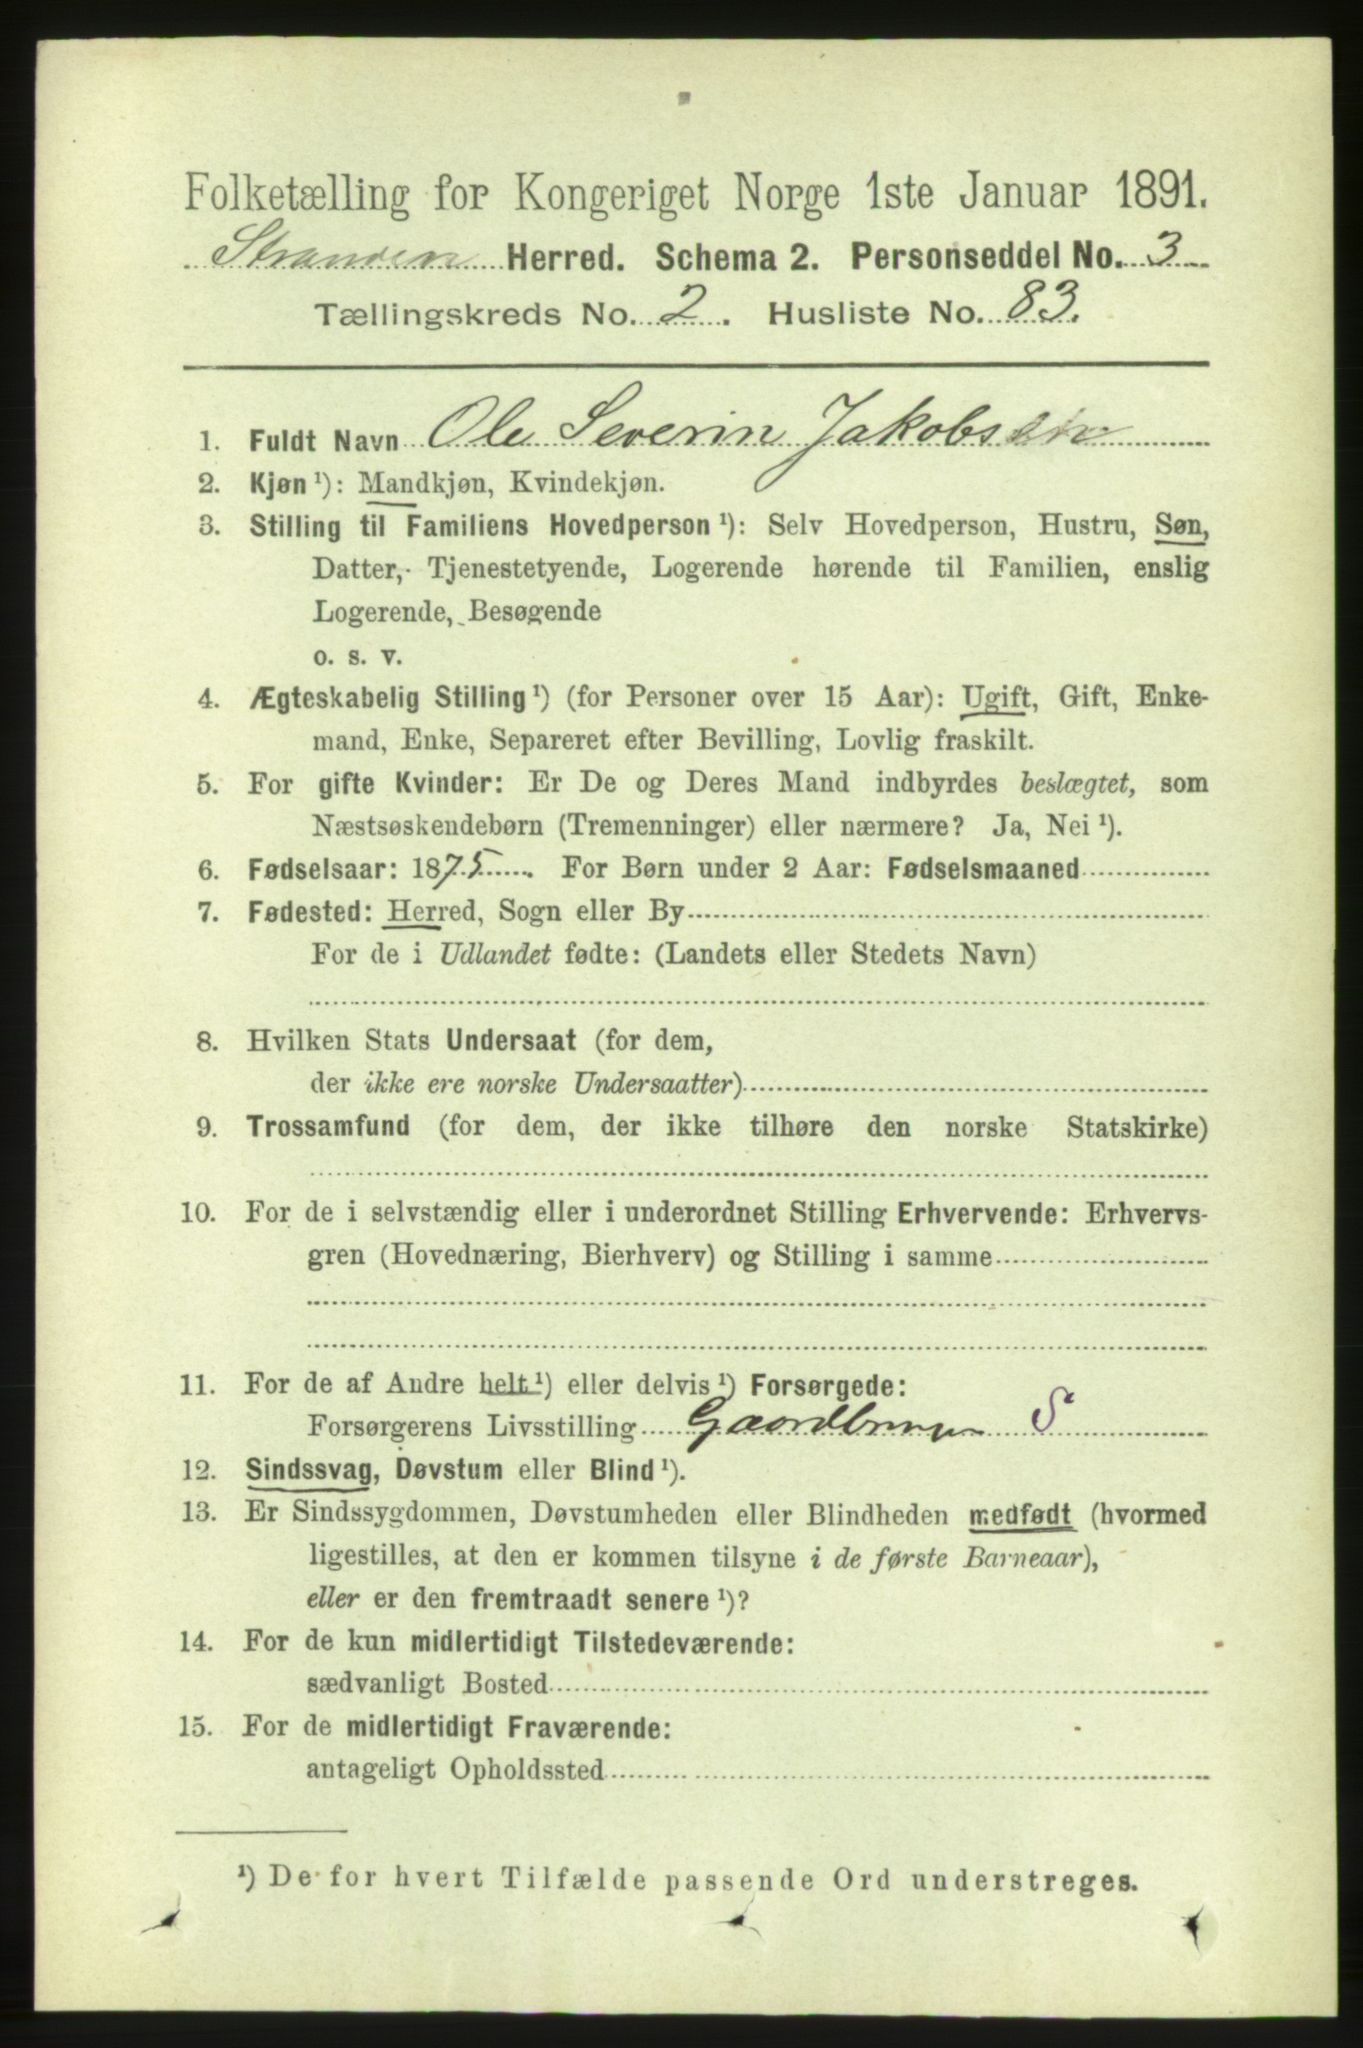 Folketælling for Kongeriget Norge 1ste Januar 1891.
Stranden Herred. Schema 2. Personseddel No. 3
Tællingskreds No. 2. Husliste No. 83.
1. Fuldt Navn Ole Severin Jakobsen
2. Kjøn ¹): Mandkjøn, Kvindekjøn.
3. Stilling til Familiens Hovedperson ¹): Selv Hovedperson, Hustru, Søn,
Datter, Tjenestetyende, Logerende hørende til Familien, enslig
Logerende, Besøgende
o. s. v.
4. Ægteskabelig Stilling ¹) (for Personer over 15 Aar): Ugift, Gift, Enke-
mand, Enke, Separeret efter Bevilling, Lovlig fraskilt.
5. For gifte Kvinder: Er De og Deres Mand indbyrdes beslægtet, som
Næstsøskendebørn (Tremenninger) eller nærmere? Ja, Nei ¹).
6. Fødselsaar: 1875. For Børn under 2 Aar: Fødselsmaaned
7. Fødested: Herred, Sogn eller By
For de i Udlandet fødte: (Landets eller Stedets Navn)
8. Hvilken Stats Undersaat (for dem,
der ikke ere norske Undersaatter)
9. Trossamfund (for dem, der ikke tilhøre den norske Statskirke)
10. For de i selvstændig eller i underordnet Stilling Erhvervende: Erhvervs-
gren (Hovednæring, Bierhverv) og Stilling i samme
11. For de af Andre helt ¹) eller delvis ¹) Forsørgede:
Forsørgerens Livsstilling Gaardbruger S
12. Sindssvag, Døvstum eller Blind ¹).
13. Er Sindssygdommen, Døvstumheden eller Blindheden medfødt (hvormed
ligestilles, at den er kommen tilsyne i de første Barneaar),
eller er den fremtraadt senere ¹)?
14. For de kun midlertidigt Tilstedeværende:
sædvanligt Bosted
15. For de midlertidigt Fraværende:
antageligt Opholdssted
¹) De for hvert Tilfælde passende Ord understreges.